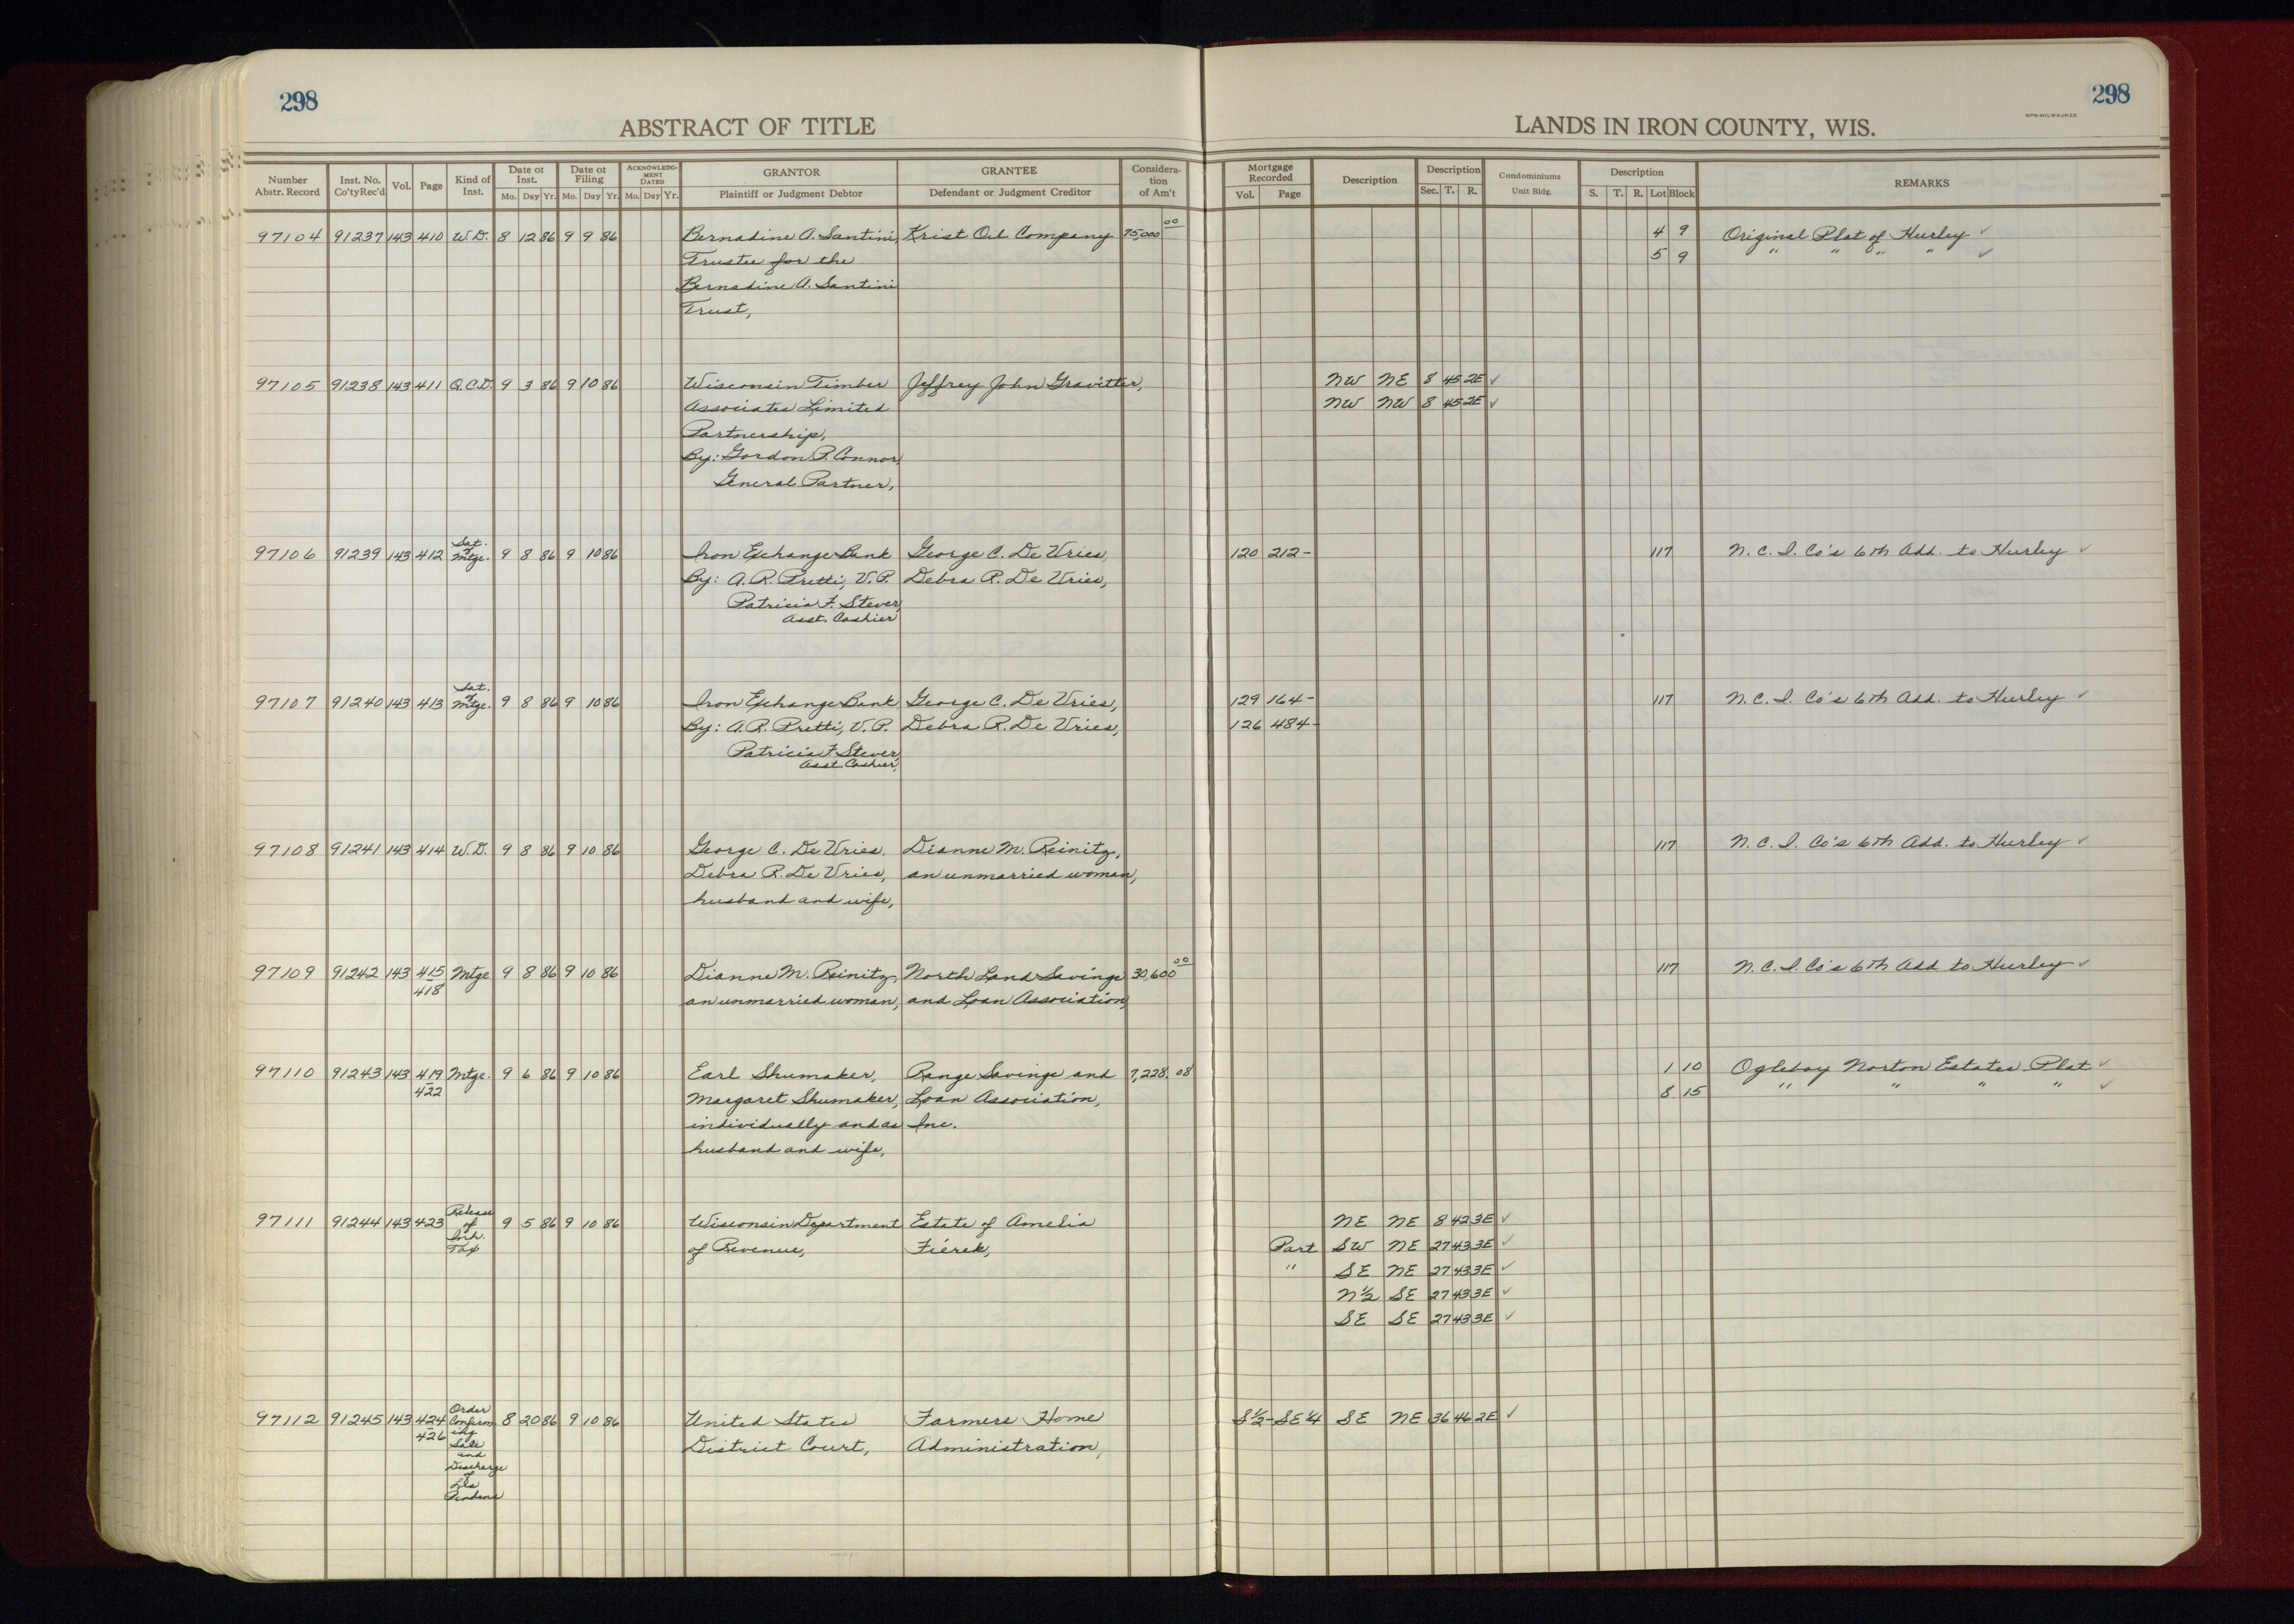 298
ABSTRACT OF TITLE
298
LANDS IN IRON COUNTY, WIS.
WPB-MILWAUKEE
Number Abstr. Record | Inst. No. Co'ty Rec'd | Vol. | Page | Kind of Inst. | Date of Inst. Mo. Day Yr. | Date of Filing Mo. Day Yr. | ACKNOWLEDGMENT DATED Mo. Day Yr. | GRANTOR Plaintiff or Judgment Debtor | GRANTEE Defendant or Judgment Creditor | Consideration of Am't | Mortgage Recorded Vol. Page | Description | Description Sec. T. R. | Condominiums Unit Bldg. | Description S. T. R. Lot Block | REMARKS
97104 91237 143 410 W.D. 8 12 86 9 9 86 Bernadine A. Santini, Krist Oil Company 75,000 00 4 9 Original Plat of Hurley ✓
Trustee for the 5 9 " " " " ✓
Bernadine A. Santini
Trust,
97105 91238 143 411 Q.C.D. 9 3 86 9 10 86 Wisconsin Timber Jeffrey John Gravitter, NW NE 8 45 2E ✓
Associates Limited NW NW 8 45 2E ✓
Partnership,
By: Gordon P. Connor,
General Partner,
97106 91239 143 412 Sat. of Mtge. 9 8 86 9 10 86 Iron Exchange Bank George C. De Vries, 120 212- 117 N.C.I. Co's 6th Add. to Hurley ✓
By: A.R. Pretti, V.P. Debra R. De Vries,
Patricia F. Stever,
Asst. Cashier
97107 91240 143 413 Sat. of Mtge. 9 8 86 9 10 86 Iron Exchange Bank George C. De Vries, 129 164- 117 N.C.I. Co's 6th Add. to Hurley ✓
By: A.R. Pretti, V.P. Debra R. De Vries, 126 484-
Patricia F. Stever,
Asst. Cashier,
97108 91241 143 414 W.D. 9 8 86 9 10 86 George C. De Vries, Dianne M. Reinitz, 117 N.C.I. Co's 6th Add. to Hurley ✓
Debra R. De Vries, an unmarried woman,
husband and wife,
97109 91242 143 415 Mtge 9 8 86 9 10 86 Dianne M. Reinitz, North Land Savings 30,600 00 117 N.C.I. Co's 6th Add to Hurley ✓
418 an unmarried woman, and Loan Association,
97110 91243 143 419 Mtge. 9 6 86 9 10 86 Earl Shumaker, Range Savings and 7,228.08 1 10 Oglebay Norton Estates Plat ✓
422 Margaret Shumaker, Loan Association, 8 15 " " " " ✓
individually and as Inc.
husband and wife,
97111 91244 143 423 Release of Inh. Tax 9 5 86 9 10 86 Wisconsin Department Estate of Amelia NE NE 8 42 3E ✓
of Revenue, Fierek, Part SW NE 27 43 3E ✓
" SE NE 27 43 3E ✓
N½ SE 27 43 3E ✓
SE SE 27 43 3E ✓
97112 91245 143 424 Order Confirming Sale and Discharge of Lis Pendens 8 20 86 9 10 86 United States Farmers Home S½-SE¼ SE NE 36 46 2E ✓
426 District Court, Administration,